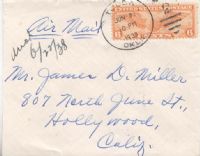 Air Mail
6/20/38
JUN
PM
1938
OKLA.
6
6
Mr. James D. Miller
807 North June St.,
Hollywood,
Calif.